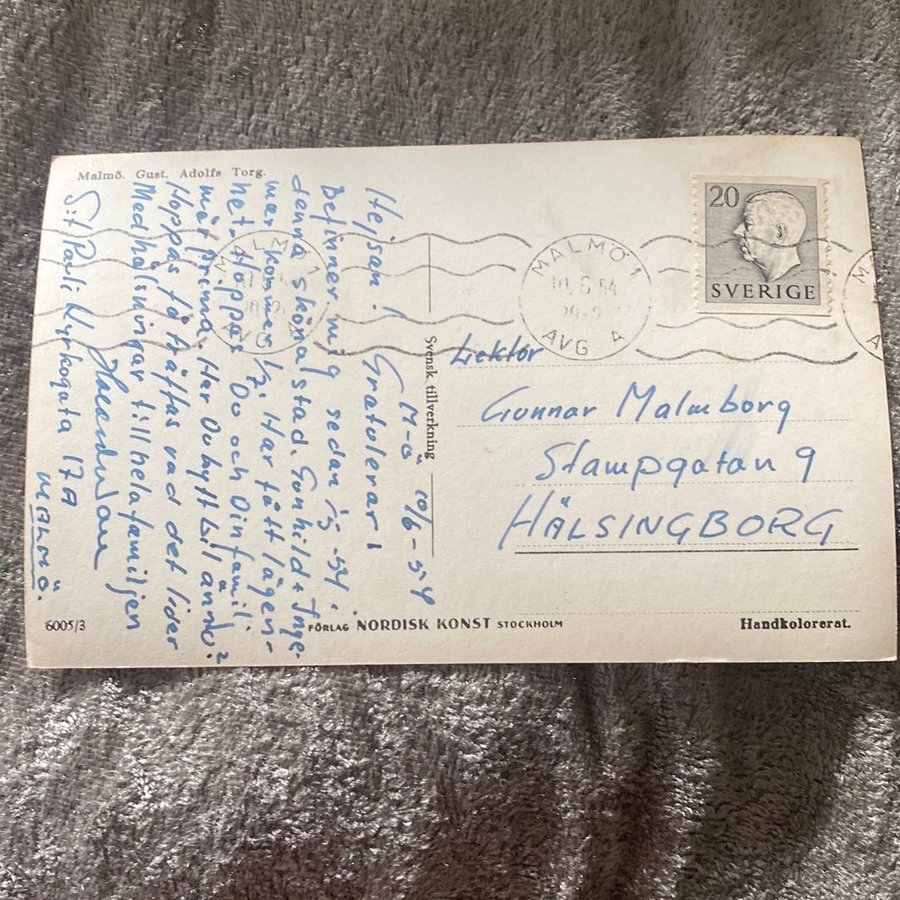 Malmö. Gust. Adolfs Torg.
M-ö 10/6-54
Hejsan! Gratulerar!
Befinner mig sedan 1/5 -54 i
denna sköna stad. Gunhild + Inge-
mar kommer 1/7. Har fått lägen-
het. Hoppas Du och Din familj
mår prima. Har Du bytt bil ännu?
Hoppas få träffas vad det lider
Med hälsningar till hela familjen
S:t Pauli Kyrkogata 17A
MALMÖ.
Svensk tillverkning
MALMÖ 1
AVG A
MALMÖ 1
10.6.54
AVG A
20
SVERIGE
Lektor
Gunnar Malmborg
Stampgatan 9
HÄLSINGBORG
6005/3
FÖRLAG NORDISK KONST STOCKHOLM
Handkolorerat.